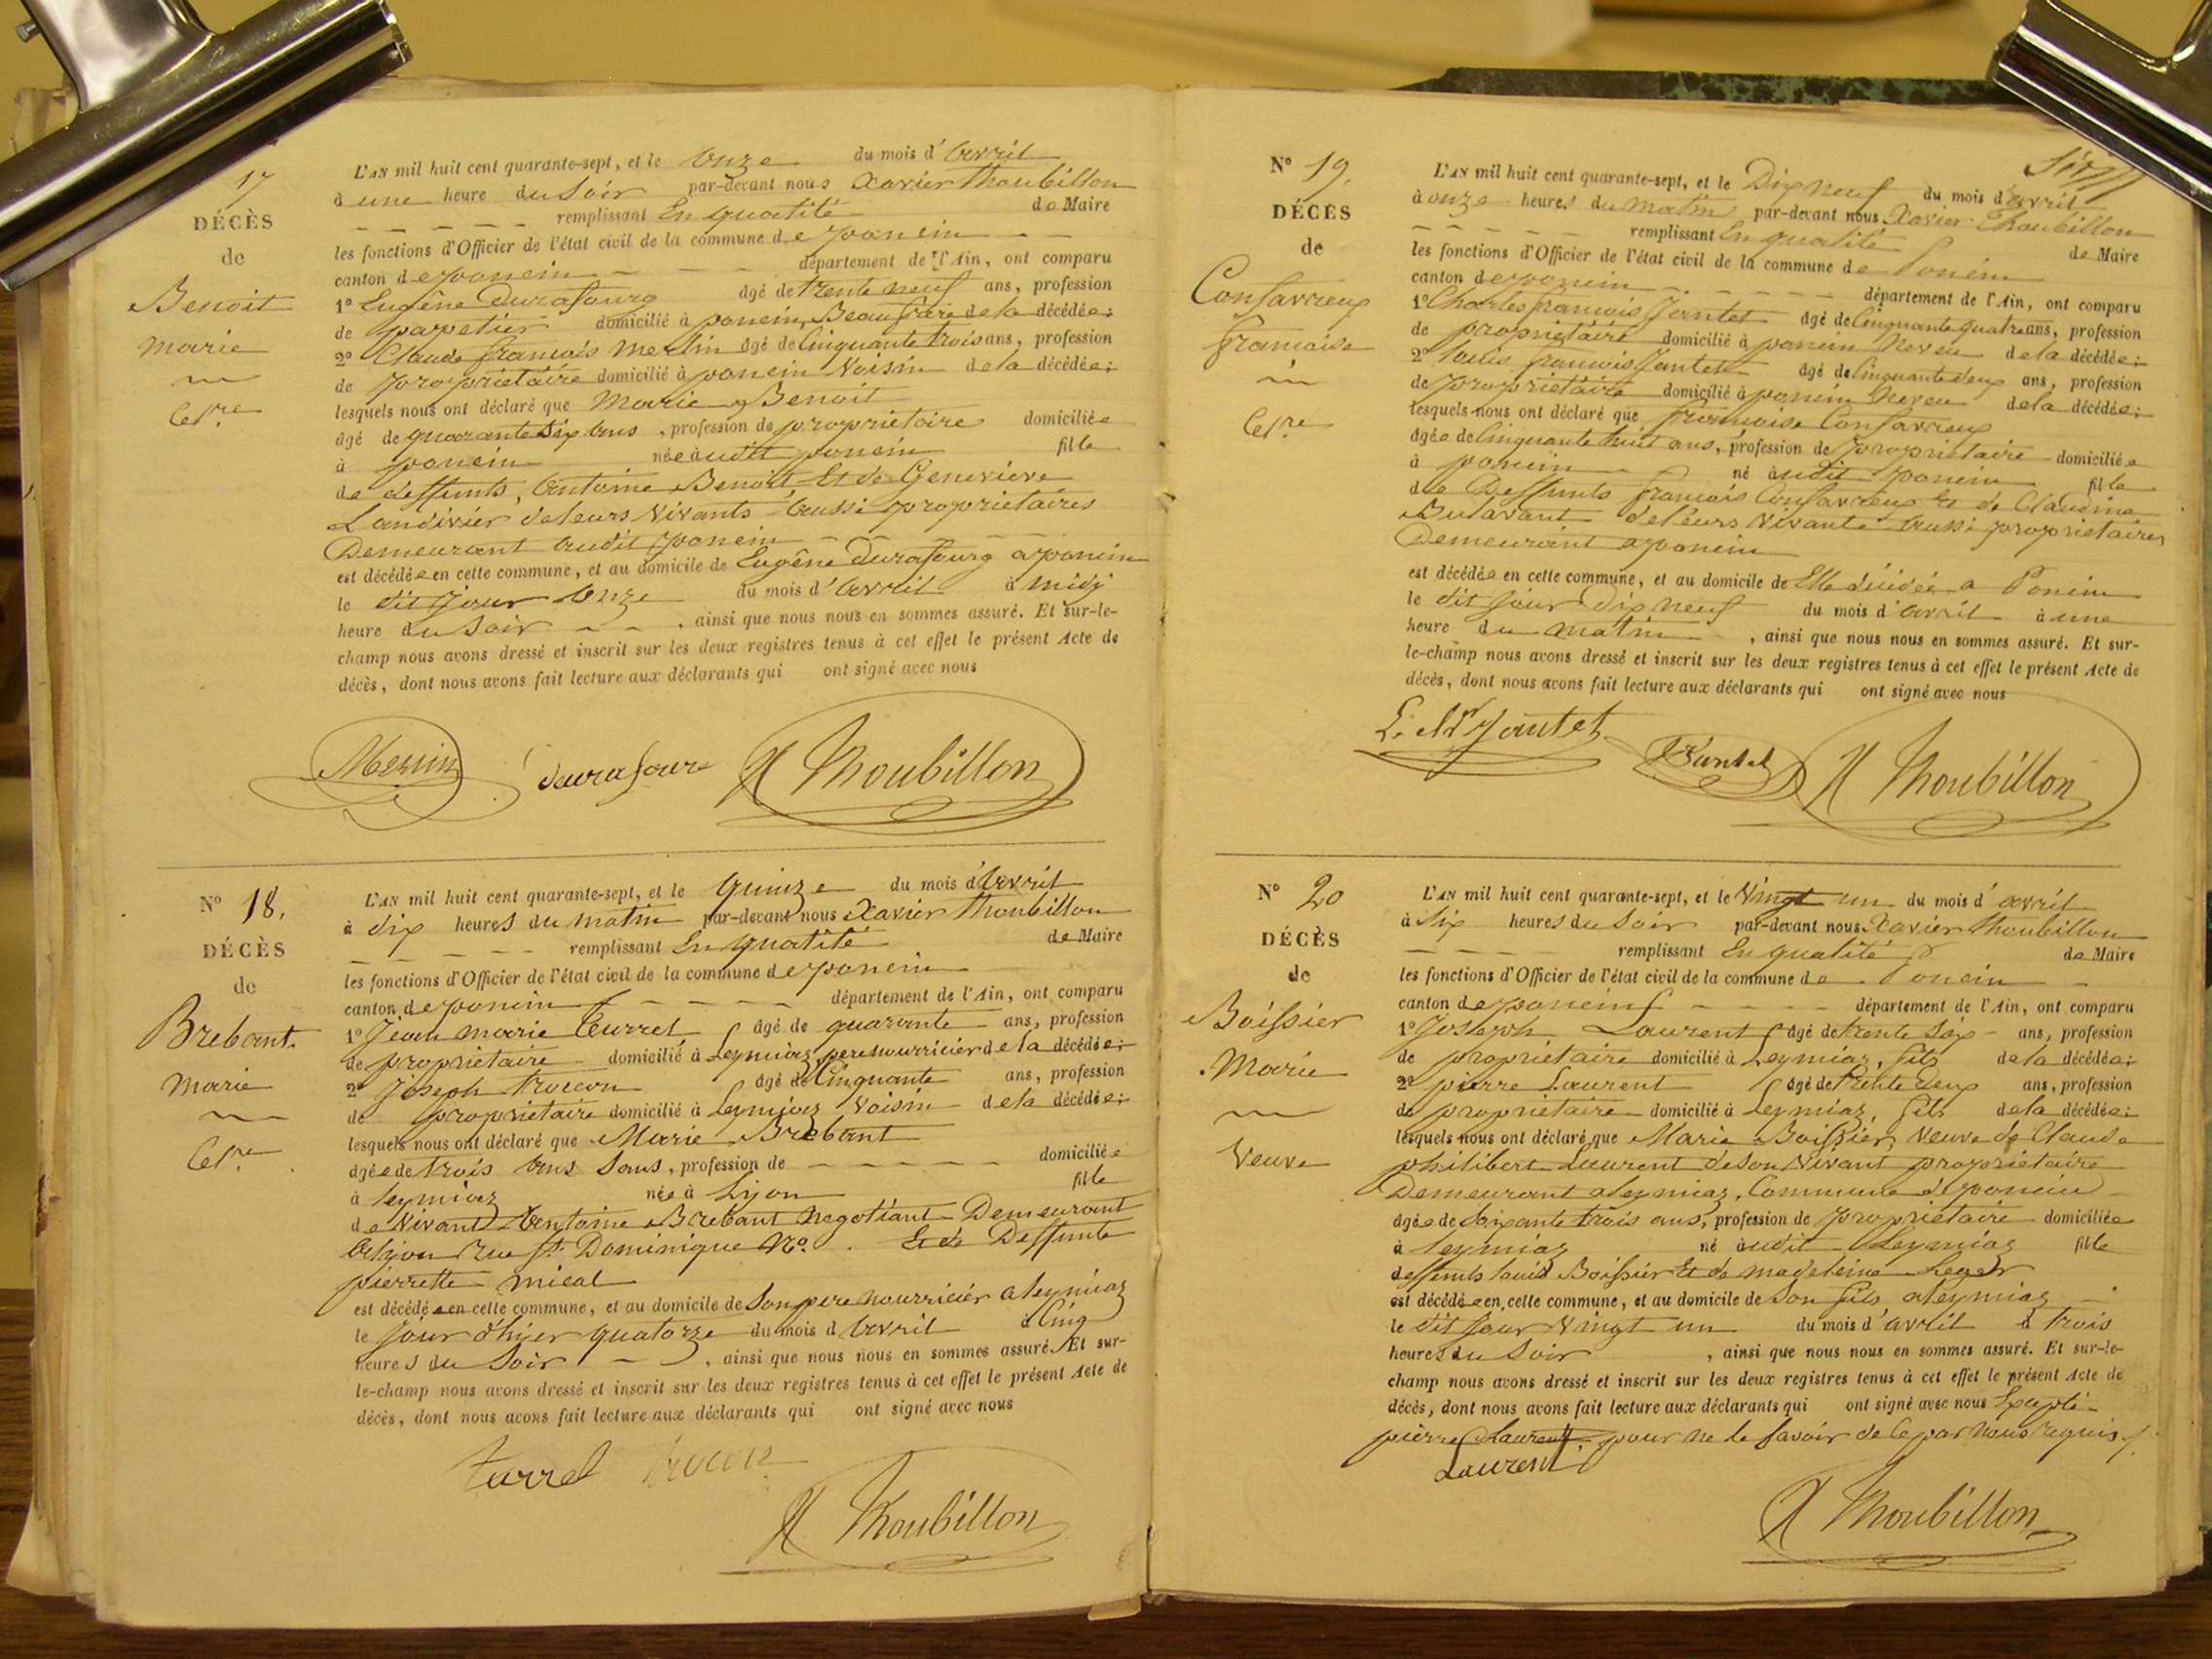 17
DÉCÈS
de
Benoit
marie
Cel.re
L'AN mil huit cent quarante-sept, et le Onze du mois d'Avril
à une heure du Soir par-devant nous Xavier Thoubillon
remplissant En qualité de Maire
les fonctions d'Officier de l'état civil de la commune de poncin
canton de poncin département de l'Ain, ont comparu
1° Eugêne Durafourg âgé de trente neuf ans, profession
de papetier domicilié à poncin, Beaufrère de la décédée;
2° Claude françois Merlin âgé de Cinquante trois ans, profession
de propriétaire domicilié à poncin Voisin de la décédée;
lesquels nous ont déclaré que Marie Benoit
âgé de quarante Six ans, profession de propriétaire domiciliée
à poncin née àudit poncin fille
de deffunts, Antoine Benoit Et de Geneviève
Landivier de leurs vivants aussi propriétaires
Demeurant audit poncin
est décédée en cette commune, et au domicile de Eugêne Durafourg a poncin
le dit Jour Onze du mois d'Avril à midj
heure du Soir, ainsi que nous nous en sommes assuré. Et sur-le-
champ nous avons dressé et inscrit sur les deux registres tenus à cet effet le présent Acte de
décès, dont nous avons fait lecture aux déclarants qui ont signé avec nous
durafour X Thoubillon
N° 18.
DÉCÈS
de
Brebant.
Marie
Cel.re
L'AN mil huit cent quarante-sept, et le quinze du mois d'Avril
à dix heures du matin par-devant nous Xavier Thoubillon
remplissant En qualité de Maire
les fonctions d'Officier de l'état civil de la commune de poncin
canton de poncin département de l'Ain, ont comparu
1° Jean marie Turrel âgé de quarante ans, profession
de propriétaire domicilié à Leymiaz, pere nourricier de la décédée;
2° Joseph troccon âgé de Cinquante ans, profession
de propriétaire domicilié à Leymiaz Voisin de la décédée;
lesquels nous ont déclaré que Marie Brebant
âgée de trois ans Sans, profession de domiciliée
à leymiaz née à Lyon fille
de Vivant Antoine Brebant Negotiant Demeurant
rue St. Dominique N°. Et de Deffunte
pierrette mical
est décédée en cette commune, et au domicile de Son pere nourricier a leymiaz
le Jour d'hier quatorze du mois d'Avril à Cinq
heures du Soir, ainsi que nous nous en sommes assuré. Et sur-
le-champ nous avons dressé et inscrit sur les deux registres tenus à cet effet le présent Acte de
décès, dont nous avons fait lecture aux déclarants qui ont signé avec nous
turrel
X Thoubillon
N° 19.
DÉCÈS
de
Consavreux
françoise
Cel.re
L'AN mil huit cent quarante-sept, et le Dix neuf du mois d'avril
à onze heures du matin par-devant nous Xavier Thoubillon
remplissant En qualité de Maire
les fonctions d'Officier de l'état civil de la commune de Poncin
canton de poncin département de l'Ain, ont comparu
1° Charles françois Jantet âgé de Cinquante quatre ans, profession
de propriétaire domicilié à poncin Neveu de la décédée;
2° louis françois Jantet âgé de Cinquante deux ans, profession
de propriétaire domicilié à poncin Neveu de la décédée;
lesquels nous ont déclaré que françoise Consavreux
âgée de Cinquante huit ans, profession de propriétaire domiciliée
à poncin né àudit poncin fille
de Deffunts françois Consavreux Et de Claudine
de leurs Vivants aussi propriétaires
Demeurant a poncin
est décédée en cette commune, et au domicile de Elle décédée a Poncin
le dit Jour Dix neuf du mois d'avril à une
heure du matin, ainsi que nous nous en sommes assuré. Et sur-
le-champ nous avons dressé et inscrit sur les deux registres tenus à cet effet le présent Acte de
décès, dont nous avons fait lecture aux déclarants qui ont signé avec nous
Jantet
Jantet X Thoubillon
N° 20
DÉCÈS
de
Boissier
Marie
Veuve
L'AN mil huit cent quarante-sept, et le Vingt un du mois d'avril
à Six heures du Soir par-devant nous Xavier Thoubillon
remplissant En qualité de Maire
les fonctions d'Officier de l'état civil de la commune de Poncin
canton de poncin département de l'Ain, ont comparu
1° Joseph Laurent âgé de trente Six ans, profession
de propriétaire domicilié à Leymiaz, fils de la décédée;
2° pierre Laurent âgé de trente Deux ans, profession
de propriétaire domicilié à Leymiaz, fils de la décédée;
lesquels nous ont déclaré que Marie Boissier, Veuve de Claude
philibert Laurent de son Vivant propriétaire
Demeurant a leymiaz, Commune de poncin
âgée de Soixante trois ans, profession de propriétaire domiciliée
à leymiaz né àudit Leymiaz fille
deffunts louis Boissier Et de madeleine Leger
est décédée en cette commune, et au domicile de Son fils a leymiaz
le dit Jour Vingt un du mois d'avril à trois
heures du Soir, ainsi que nous nous en sommes assuré. Et sur-le-
champ nous avons dressé et inscrit sur les deux registres tenus à cet effet le présent Acte de
décès, dont nous avons fait lecture aux déclarants qui ont signé avec nous Excepté
pierre Laurent, pour ne le Savoir de Ce par nous requis
Laurent
X Thoubillon